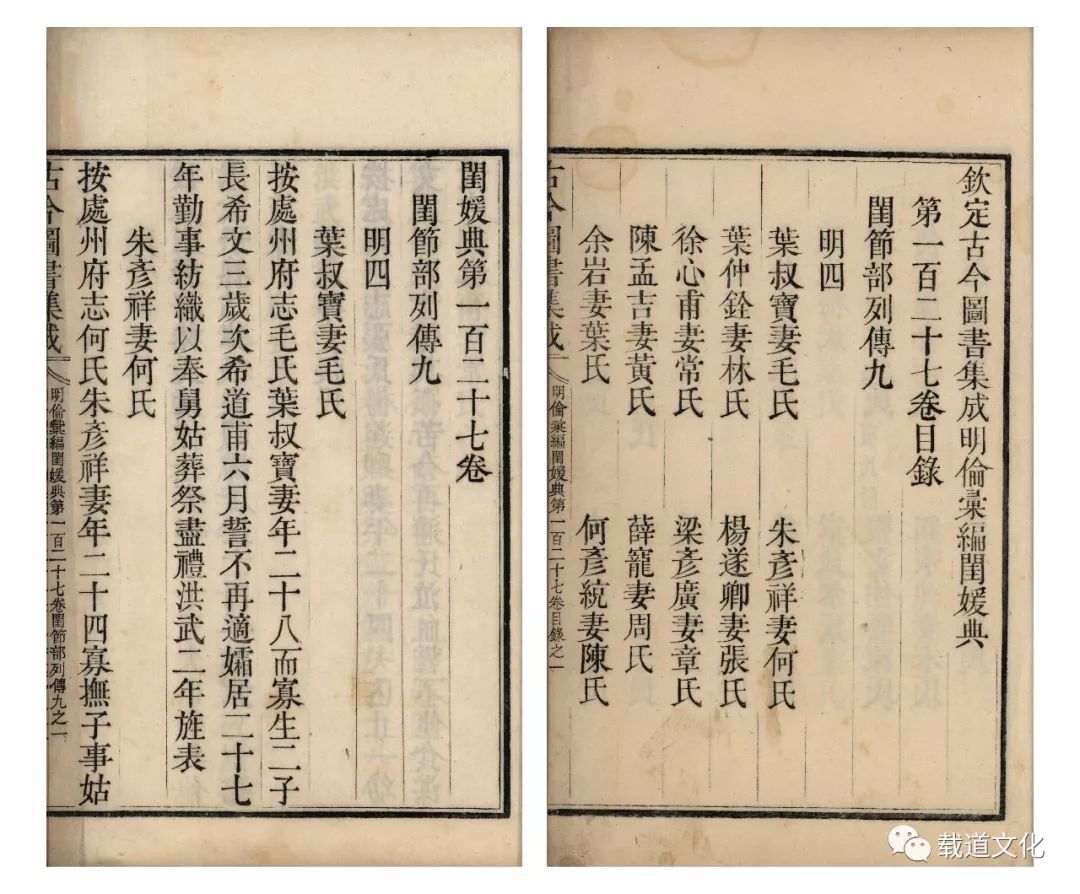 欽定古今圖書集成明倫彙編閨媛典
第一百二十七卷目錄
閨節部列傳九
明四
葉叔寶妻毛氏 朱彥祥妻何氏
葉仲銓妻林氏 楊遂卿妻張氏
徐心甫妻常氏 梁彥廣妻章氏
陳孟吉妻黃氏 薛寵妻周氏
余岩妻葉氏 何彥統妻陳氏
古今圖書集成 明倫彙編閨媛典第一百二十七卷目錄之一
閨媛典第一百二十七卷
閨節部列傳九
明四
葉叔寶妻毛氏
按處州府志毛氏葉叔寶妻年二十八而寡生二子
長希文三歲次希道甫六月誓不再適孀居二十七
年勤事紡織以奉舅姑葬祭盡禮洪武二年旌表
朱彥祥妻何氏
按處州府志何氏朱彥祥妻年二十四寡撫子事姑
古今圖書集成 明倫彙編閨媛典第一百二十七卷閨節部列傳九之一
载道文化